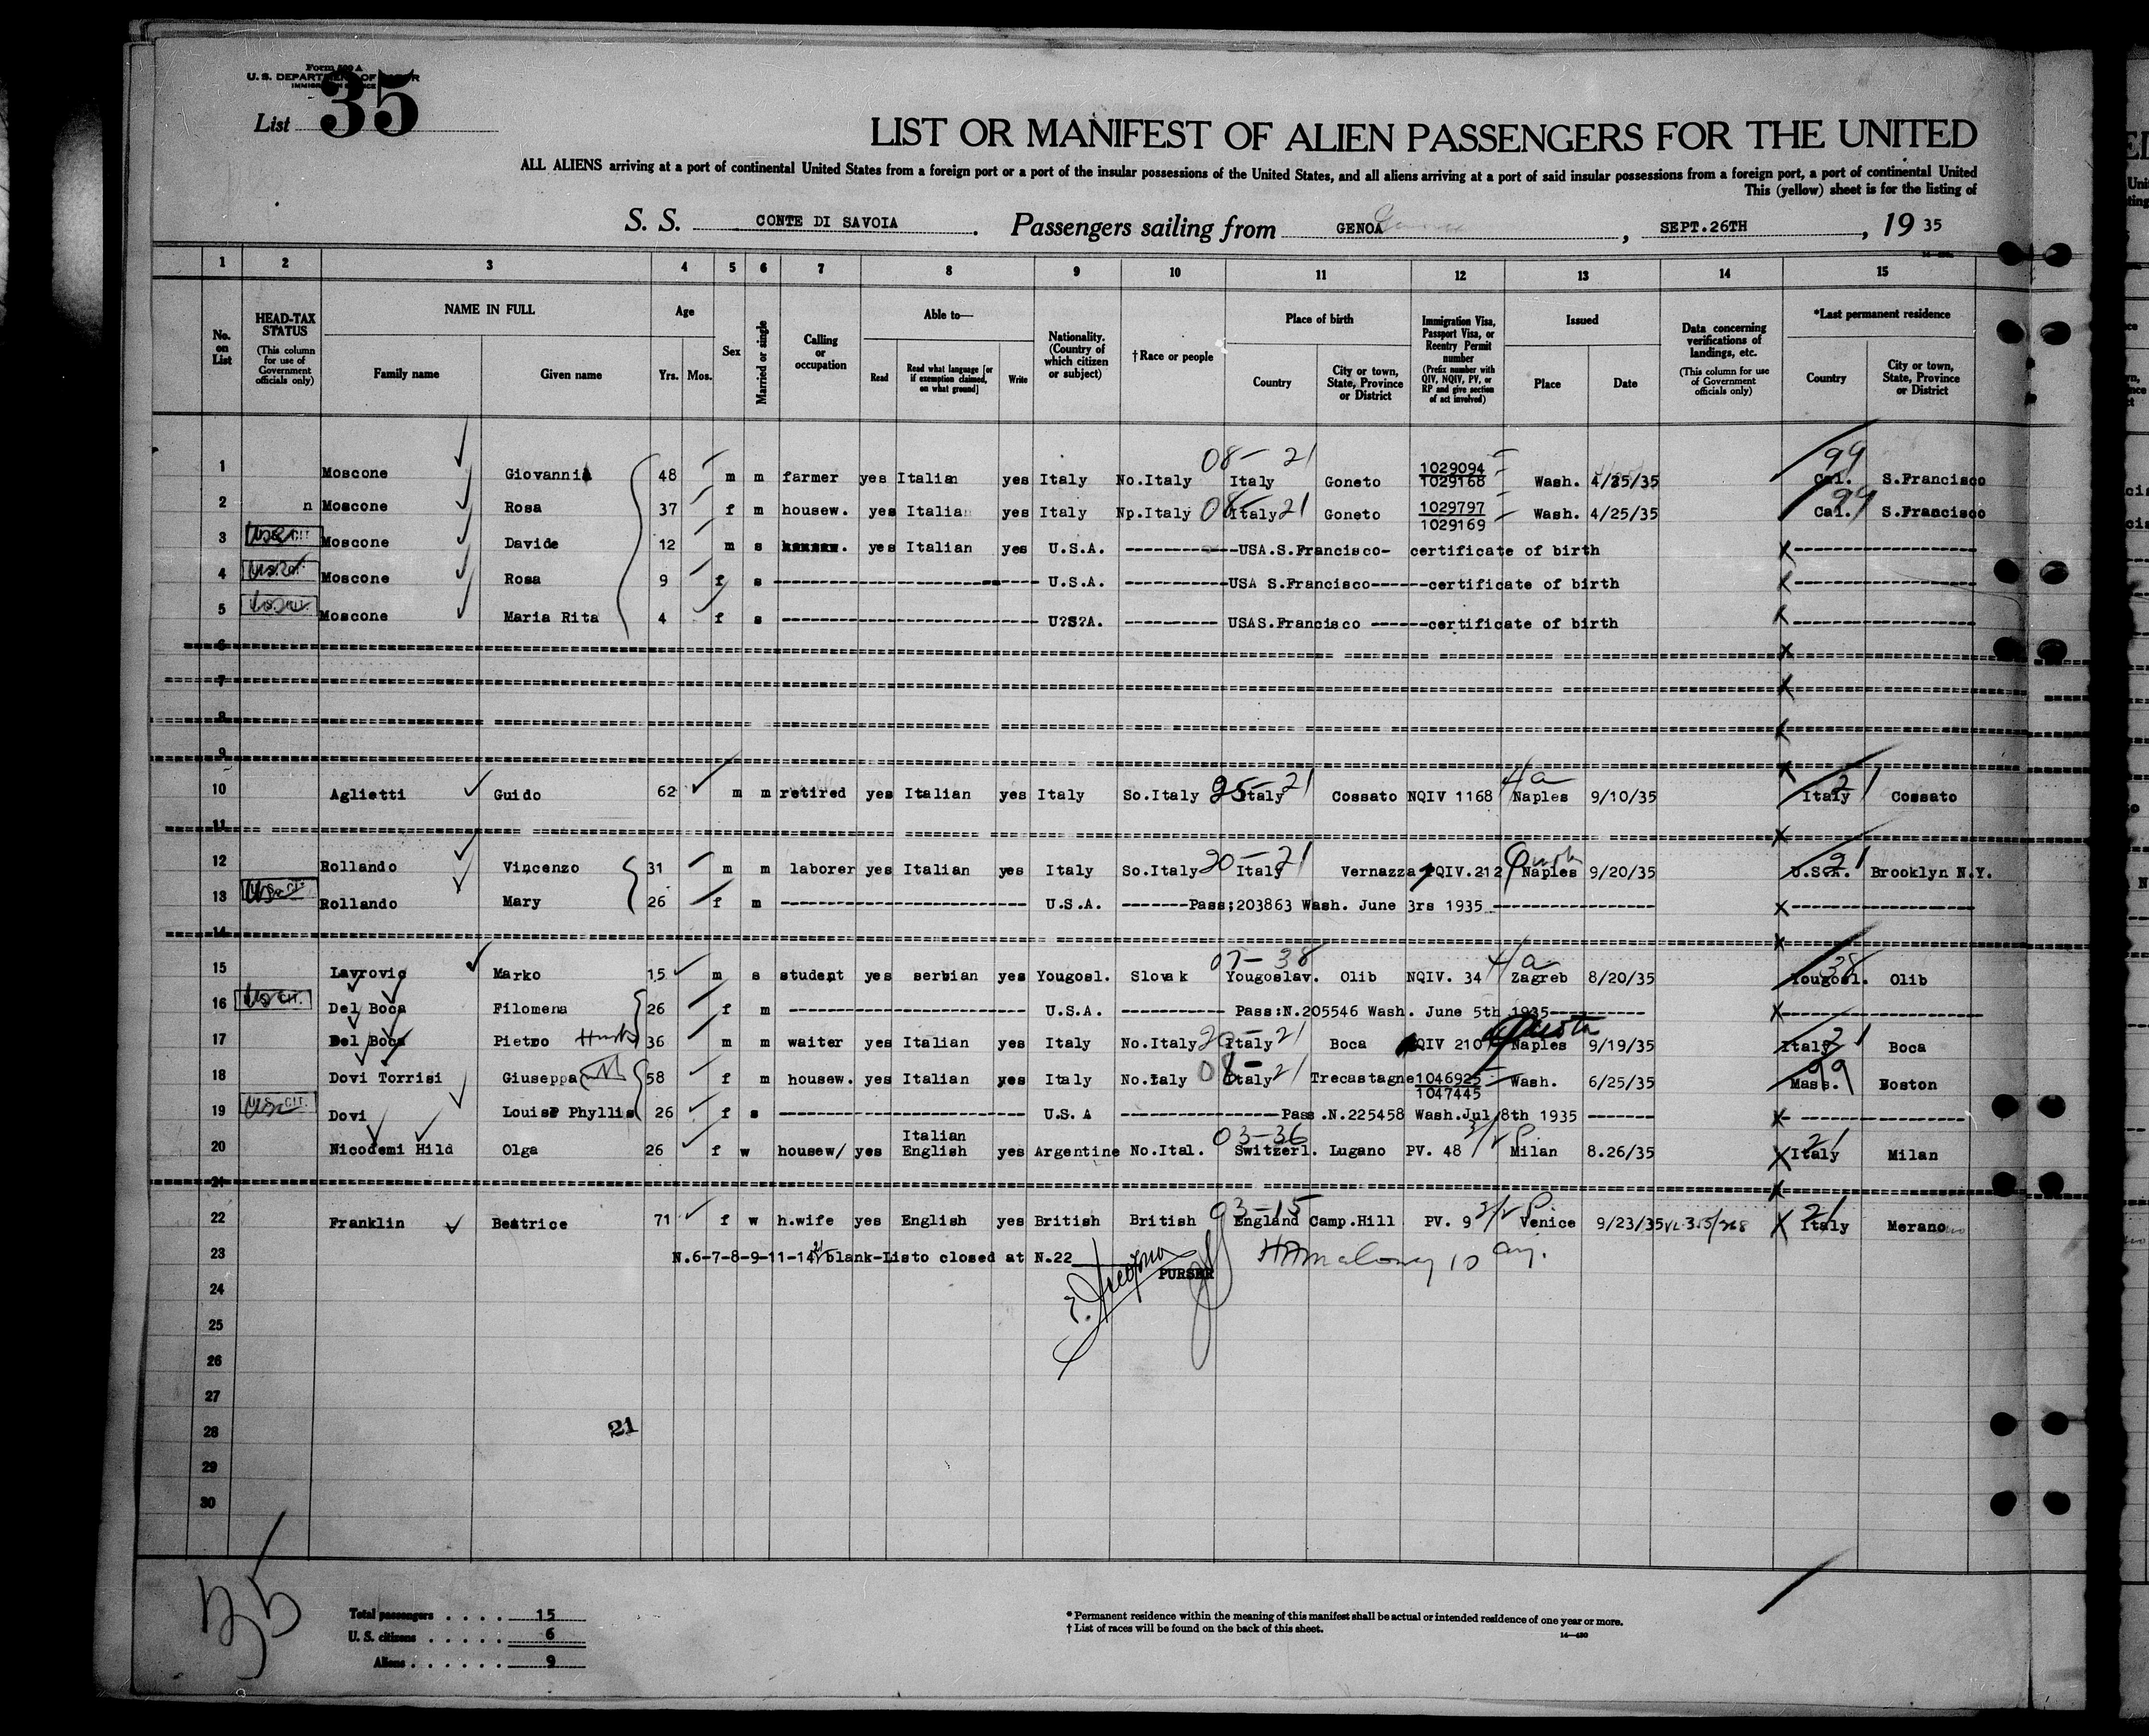 Form 500 A
U. S. DEPARTMENT OF LABOR
List 35
LIST OR MANIFEST OF ALIEN PASSENGERS FOR THE UNITED
ALL ALIENS arriving at a port of continental United States from a foreign port or a port of the insular possessions of the United States, and all aliens arriving at a port of said insular possessions from a foreign port, a port of continental United
This (yellow) sheet is for the listing of
S. S. CONTE DI SAVOIA . Passengers sailing from GENOA , SEPT.26TH , 19 35
1 2 3 4 5 6 7 8 9 10 11 12 13 14 15
No. on List
HEAD-TAX STATUS (This column for use of Government officials only)
NAME IN FULL
Family name
Given name
Age
Yrs. Mos.
Sex
Married or single
Calling or occupation
Able to—
Read
Read what language [or if exemption claimed, on what ground]
Write
Nationality. (Country of which citizen or subject)
†Race or people
Place of birth
Country
City or town, State, Province or District
Immigration Visa, Passport Visa, or Reentry Permit number (Prefix number with QIV, NQIV, PV, or RP and give section of act involved)
Issued
Place
Date
Data concerning verifications of landings, etc. (This column for use of Government officials only)
*Last permanent residence
Country
City or town, State, Province or District
08- 21 99
1 Moscone Giovanni 48 m m farmer yes Italian yes Italy No.Italy Italy Goneto 1029094 1029168 Wash. 4/25/35 Cal. S.Francisco
2 n Moscone Rosa 37 f m housew. yes Italian yes Italy Np.Italy 08- Italy 21 Goneto 1029797 1029169 Wash. 4/25/35 Cal. 99 S.Francisco
3 Moscone Davide 12 m s yes Italian yes U.S.A. -----------USA.S.Francisco- certificate of birth X------------------
4 Moscone Rosa 9 f s ------------------------ U.S.A. ----------USA S.Francisco------certificate of birth X------------------
5 Moscone Maria Rita 4 f s ------------------------ U?S?A. ---------- USAS.Francisco ------certificate of birth X------------------
6 X
7 X
8 X
9 X
10 Aglietti Guido 62 m m retired yes Italian yes Italy So.Italy 25- Italy 21 Cossato NQIV 1168 4a Naples 9/10/35 Italy 21 Cossato
11 X
12 Rollando Vincenzo 31 m m laborer yes Italian yes Italy So.Italy 20- Italy 21 Vernazza QIV.212 Naples 9/20/35 U.S.A. 21 Brooklyn N.Y.
13 U.S. CIT. Rollando Mary 26 f m ------------------------ U.S.A. -------Pass;203863 Wash. June 3rs 1935 ---------------- X------------------
14 X
07- 38 4a
15 Lavrovic Marko 15 m s student yes serbian yes Yougosl. Slovak Yougoslav. Olib NQIV. 34 Zagreb 8/20/35 Yougosl. 38 Olib
16 Del Boca Filomena 26 f m ------------------------ U.S.A. ---------- Pass:N.205546 Wash. June 5th 1935---------- X------------------
17 Del Boca Pietro Husb 36 m m waiter yes Italian yes Italy No.Italy 20- Italy 21 Boca QIV 210 Quota Naples 9/19/35 Italy 21 Boca
18 Dovi Torrisi Giuseppa M 58 f m housew. yes Italian yes Italy No.Italy 08- Italy 21 Trecastagne 1046925 1047445 Wash. 6/25/35 Mass. 99 Boston
19 U.S. CIT. Dovi Louise Phyllis 26 f s ------------------------ U.S. A ---------------Pass.N.225458 Wash.Jul/8th 1935 ------- X- ----------------
20 Nicodemi Hild Olga 26 f w housew/ yes Italian English yes Argentine No.Ital. 03-36 Switzerl. Lugano PV. 48 3/2 P Milan 8.26/35 X Italy 21 Milan
21 X
22 Franklin Beatrice 71 f w h.wife yes English yes British British 03-15 England Camp.Hill PV. 9 3/2 P Venice 9/23/35 X Italy 21 Merano
23 N.6-7-8-9-11-14 21 blank-Listo closed at N.22
PURSER
24
25
26
27
28 21
29
30
35
Total passengers . . . . 15
U. S. citizens . . . . . 6
Aliens . . . . . . 9
* Permanent residence within the meaning of this manifest shall be actual or intended residence of one year or more.
† List of races will be found on the back of this sheet.
14—430